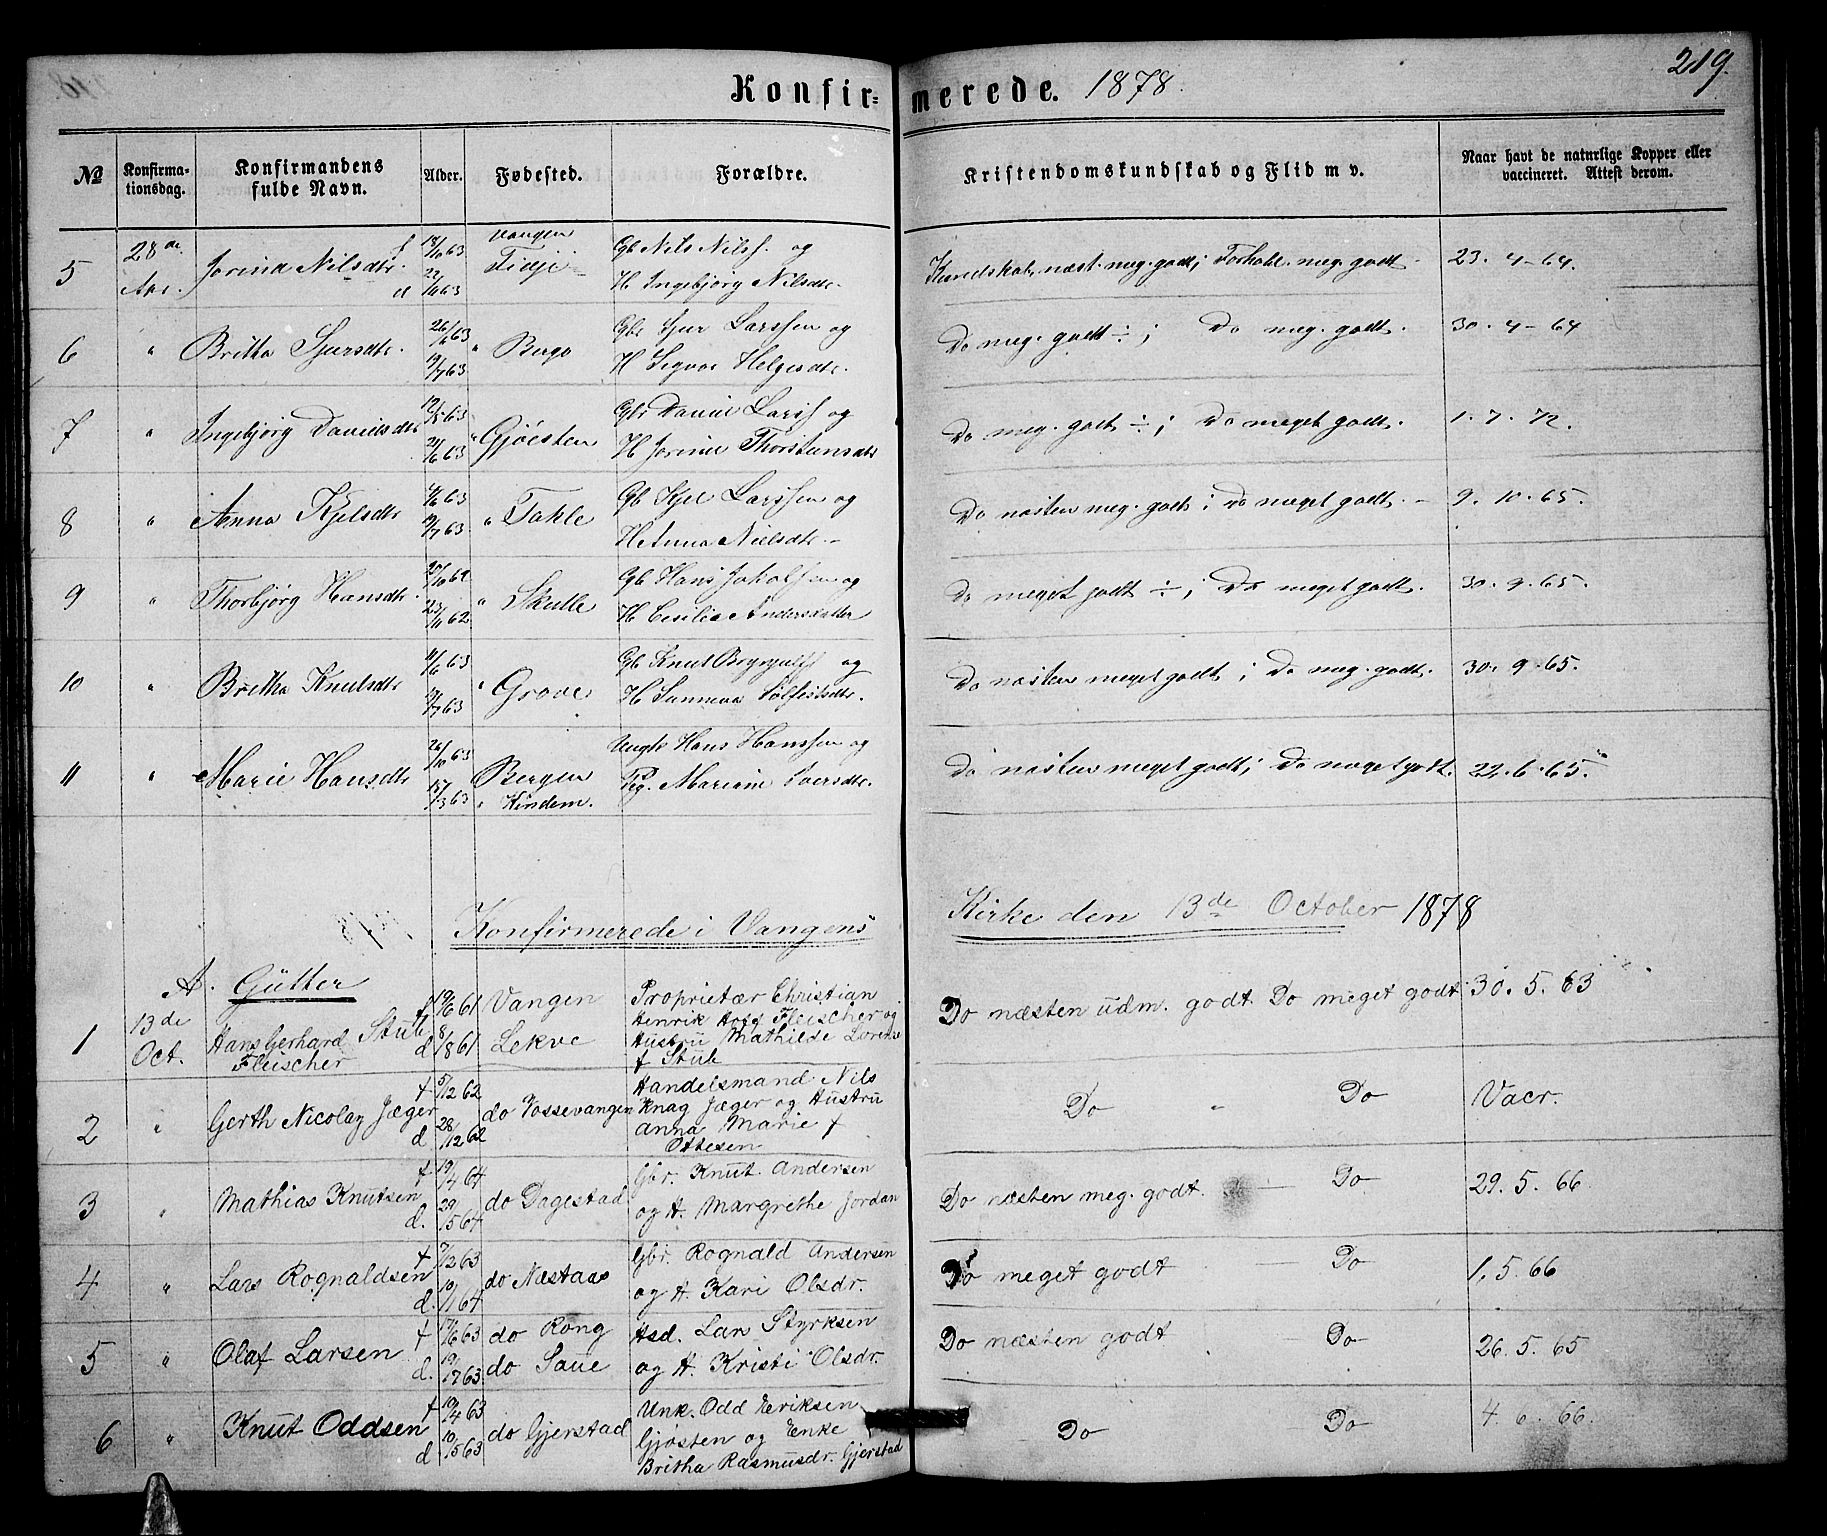 219.
Konfirmerede. 1878.
№ Konfirmationsdag. Konfirmandens fulde Navn. Alder. Fødested. Forældre. Kristendomskundskab og Flid m v. Naar havt de naturlige Kopper eller vaccineret. Attest derom.
5 28de Apr. Jorina Nilsdtr. f 18/10 63 d 22/11 63 Vangen Gb Nils Nilss. og
H Ingebjørg Nilsdtr. Kundskab næst. meg. godt; Forhold meg. godt 23. 4-64.
6 " Britha Sjursdtr. 26/6 63 19/7 63 " Berge Gbr Sjur Larssen og
H Sigvor Helgesdtr. Do meg. godt ÷; Do meg. godt. 30. 4-64
7 " Ingebjørg Davidsdtr 19/5 63 21/6 63 " Gjøesten Gbr David Larss og
H Jorina Thorstensdtr Do meg. godt ÷; Do meget godt. 1. 7. 72.
8 " Anna Kjelsdtr 4/6 63 19/7 63 " Takle Gb Kjel Larssen og
H Anna Nielsdtr. Do næsten meg. godt; Do meget godt. 9. 10. 65.
9 " Thorbjørg Hansdtr. 30/10 62 23/11 62 " Skulle Gb Hans Jakobsen og
H Cesilia Andersdatter Do meget godt ÷; Do meget godt. 30. 9. 65.
10 " Britha Knutsdtr 11/6 63 19/7 63 " Grove Gb Knut Brynjulfs og
H Sunneva Solfestsdtr. Do næsten meget godt; Do meg. godt. 30. 9. 65.
11 " Marie Hansdtr 26/10 63 Bergen " Kindem. Ungk Hans Hanssen og
Pg. Mariane Iversdtr. Do næsten meget godt; Do meget godt. 22. 6. 65.
Konfirmerede i Vangens Kirke den 13de October 1878
A. Gutter
1 13de Oct. Hans Gerhard Stub Fleischer f 19/6 61 d 8/8 61 Vangen Lekve Proprietær Christian
Henrik Hoff Fleischer og
Hustru Mathilde Lorense
f Stub Do næsten udm. godt. Do meget godt 30. 5. 63
2 " Gerth Nicolay Jæger f 5/12 62 d 28/12 62 do Vossevangen Handelsmand Nils
Knag Jæger og Hustru
Anna Marie f
Ottesen Do " Do Vacr.
3 " Mathias Knutsen f 19/4 64 d. 29/5 64 do Dagestad Gbr. Knut Andersen
og H. Margrethe Jordan Do næsten meg. godt. — Do 29. 5. 66
4 " Lars Rognaldsen f 7/12 63 d. 10/1 64 do Næstaas Gbr. Rognald Andersen
og H. Kari Olsdr. Do meget godt — Do 1. 5. 66
5 " Olaf Larsen f 17/6 63 d. 19/7 63 do Rong do Saue Hsd. Lars Styrksen
og H. Kristi Olsdr. Do næsten godt Do 26. 5. 65
6 " Knut Oddsen f 19/4 63 d 10/5 63 do Gjerstad Unk. Odd Eriksen
Gjøsten og Enke
Britha Rasmusdr. Gjerstad Do Do 4. 6. 66.